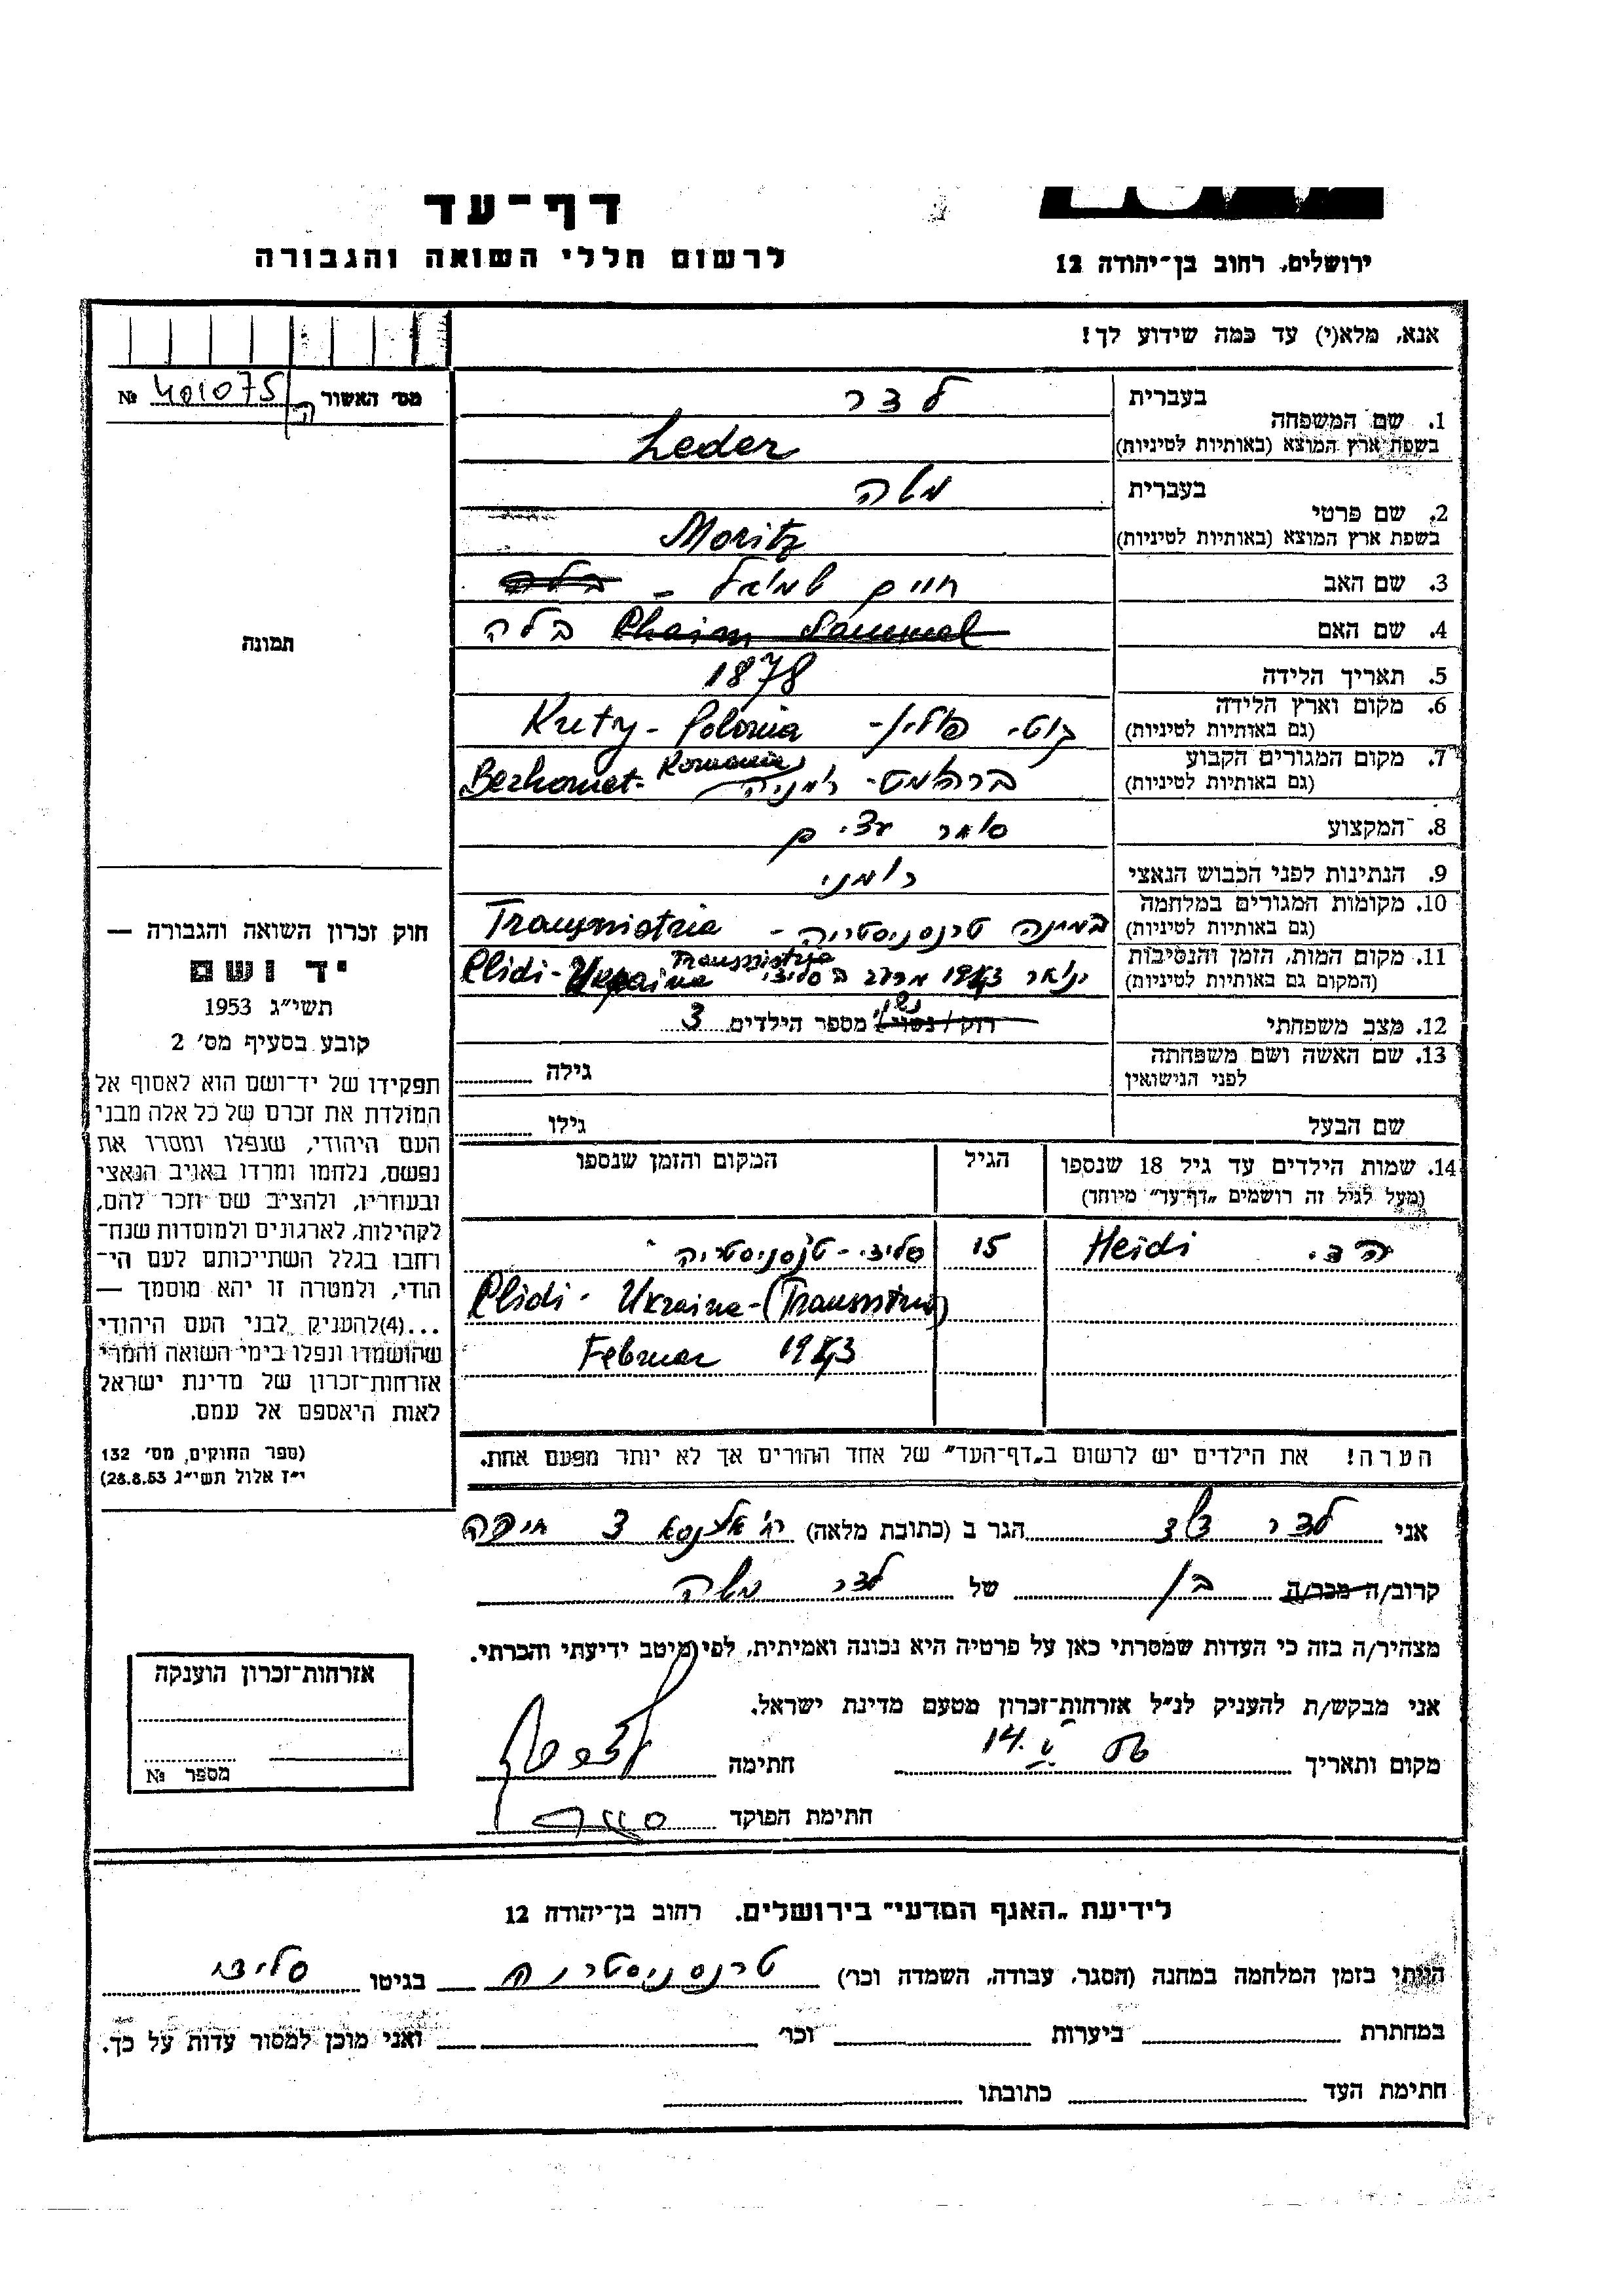 דף־עד
לרשום חללי השואה והגבורה
ירושלים, רחוב בן־יהודה 12
אנא, מלא(י) עד כמה שידוע לך!
מס׳ האשור 401075 №
תמונה
1. שם המשפחה
בעברית לדר
בשפת ארץ המוצא (באותיות לטיניות) Leder
2. שם פרטי
בעברית משה
בשפת ארץ המוצא (באותיות לטיניות) Moritz
3. שם האב חיים שמואל -
4. שם האם Chaim Sammel בלה
5. תאריך הלידה 1878
6. מקום וארץ הלידה
(גם באותיות לטיניות) קוטי פולין - Kuty - Polonia
7. מקום המגורים הקבוע
(גם באותיות לטיניות) ברהומט - רומניה Berhomet - Romania
8. המקצוע סוחר עצים
9. הנתינות לפני הכבוש הנאצי רומני
10. מקומות המגורים במלחמה
(גם באותיות לטיניות) טרנסניסטריה - Transnistria
11. מקום המות, הזמן והנסיבות
(המקום גם באותיות לטיניות) ינואר 1943 Plidi - Ukraina Transnistria
12. מצב משפחתי רוק/נשוי מספר הילדים 3
13. שם האשה ושם משפחתה
לפני הנישואין
גילה
שם הבעל
גילו
14. שמות הילדים עד גיל 18 שנספו
(מעל לגיל זה רושמים „דף־עד״ מיוחד)
הגיל
המקום והזמן שנספו
הדי Heidi 15 טרנסניסטריה
Plidi - Ukraina - (Transnistria)
Februar 1943
הערה! את הילדים יש לרשום ב„דף־העד״ של אחד ההורים אך לא יותר מפעם אחת.
חוק זכרון השואה והגבורה —
יד ושם
תשי״ג 1953
קובע בסעיף מס׳ 2
תפקידו של יד־ושם הוא לאסוף אל
המולדת את זכרם של כל אלה מבני
העם היהודי, שנפלו ומסרו את
נפשם, נלחמו ומרדו באויב הנאצי
ובעוזריו, ולהציב שם וזכר להם,
לקהילות, לארגונים ולמוסדות שנח־
רחבו בגלל השתייכותם לעם הי־
הודי, ולמטרה זו יהא מוסמך —
...(4)להעניק לבני העם היהודי
שהושמדו ונפלו בימי השואה והמרי
אזרחות־זכרון של מדינת ישראל
לאות היאספם אל עמם.
(ספר החוקים, מס׳ 132
י״ז אלול תשי״ג 28.8.53)
אני לדר הגר ב (כתובת מלאה) 3 חיפה
קרוב/ה מכר/ה בן של לדר משה
מצהיר/ה בזה כי העדות שמסרתי כאן על פרטיה היא נכונה ואמיתית, לפי מיטב ידיעתי והכרתי.
אני מבקש/ת להעניק לנ״ל אזרחות־זכרון מטעם מדינת ישראל.
מקום ותאריך 14. V 56 חתימה
חתימת הפוקד
אזרחות־זכרון הוענקה
מספר №
לידיעת „האגף המדעי״ בירושלים. רחוב בן־יהודה 12
הייתי בזמן המלחמה במחנה (הסגר, עבודה, השמדה וכו׳) טרנסניסטריה בגיטו
במחתרת ביערות וכו׳ ואני מוכן למסור עדות על כך.
חתימת העד כתובתו